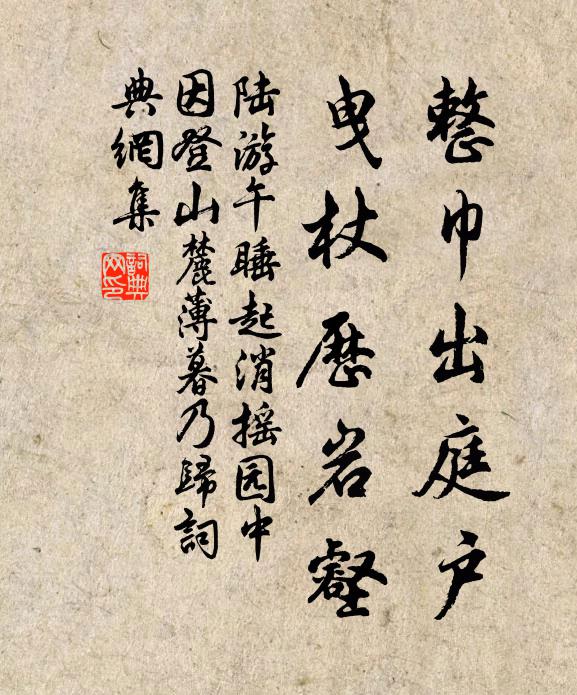 整巾出庭户
曳杖历岩壑
陆游午睡起消摇园中
因登山麓薄暮乃歸詞
典網集
詞典网印